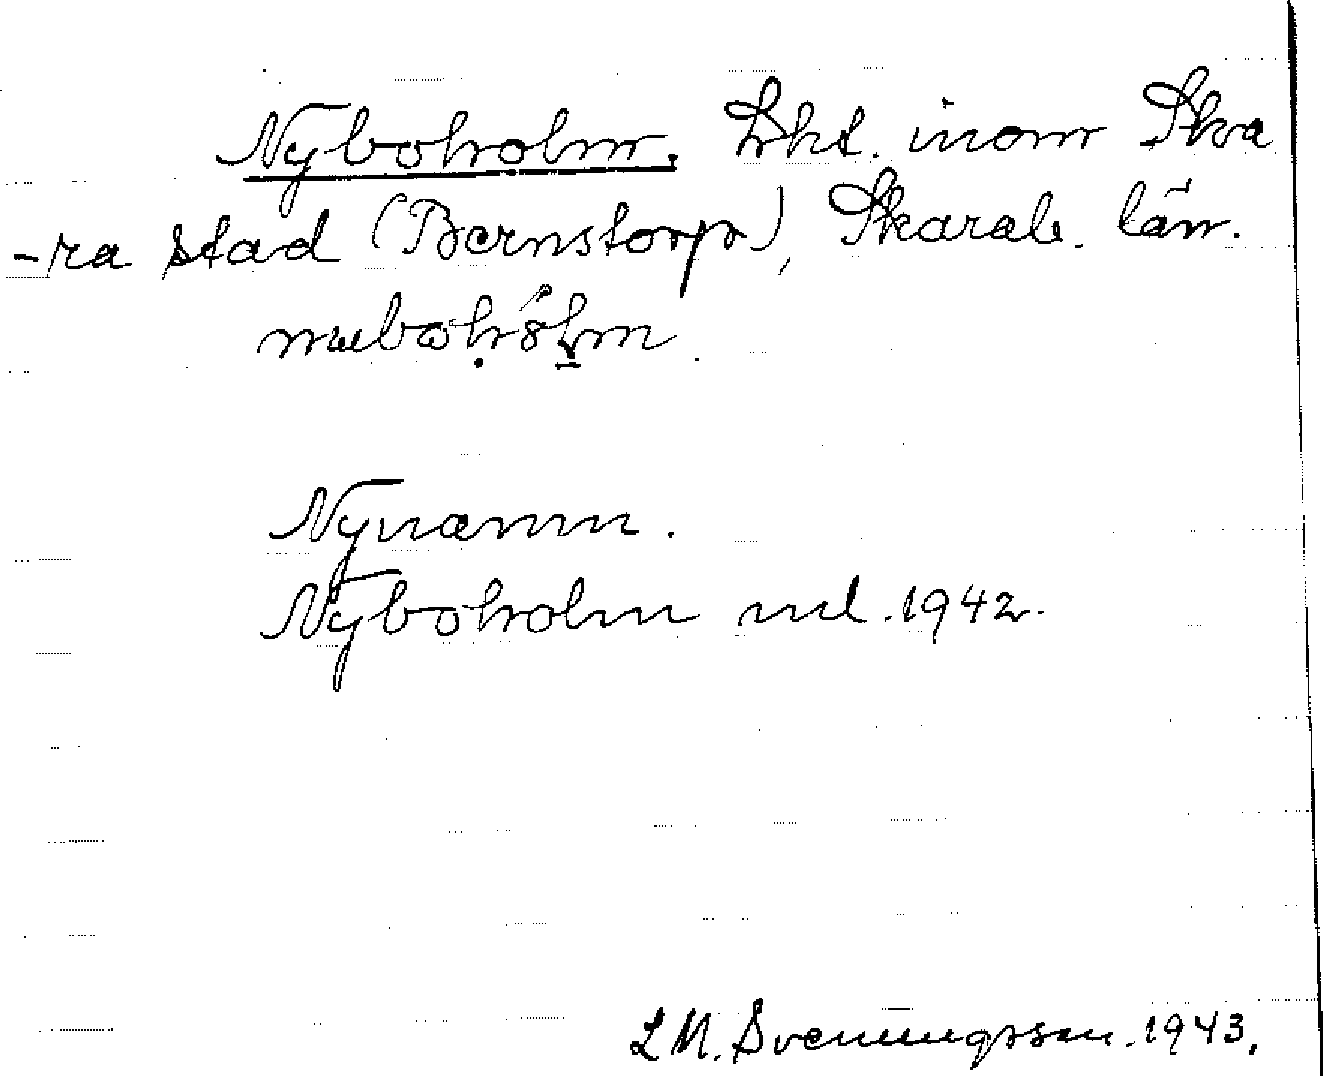 Nyboholm. Lht. inom Ska
-ra stad (Bernstorp), Skarab. län.
Nynamn.
Nyboholm ml. 1942.
L M. Svenungsson. 1943.